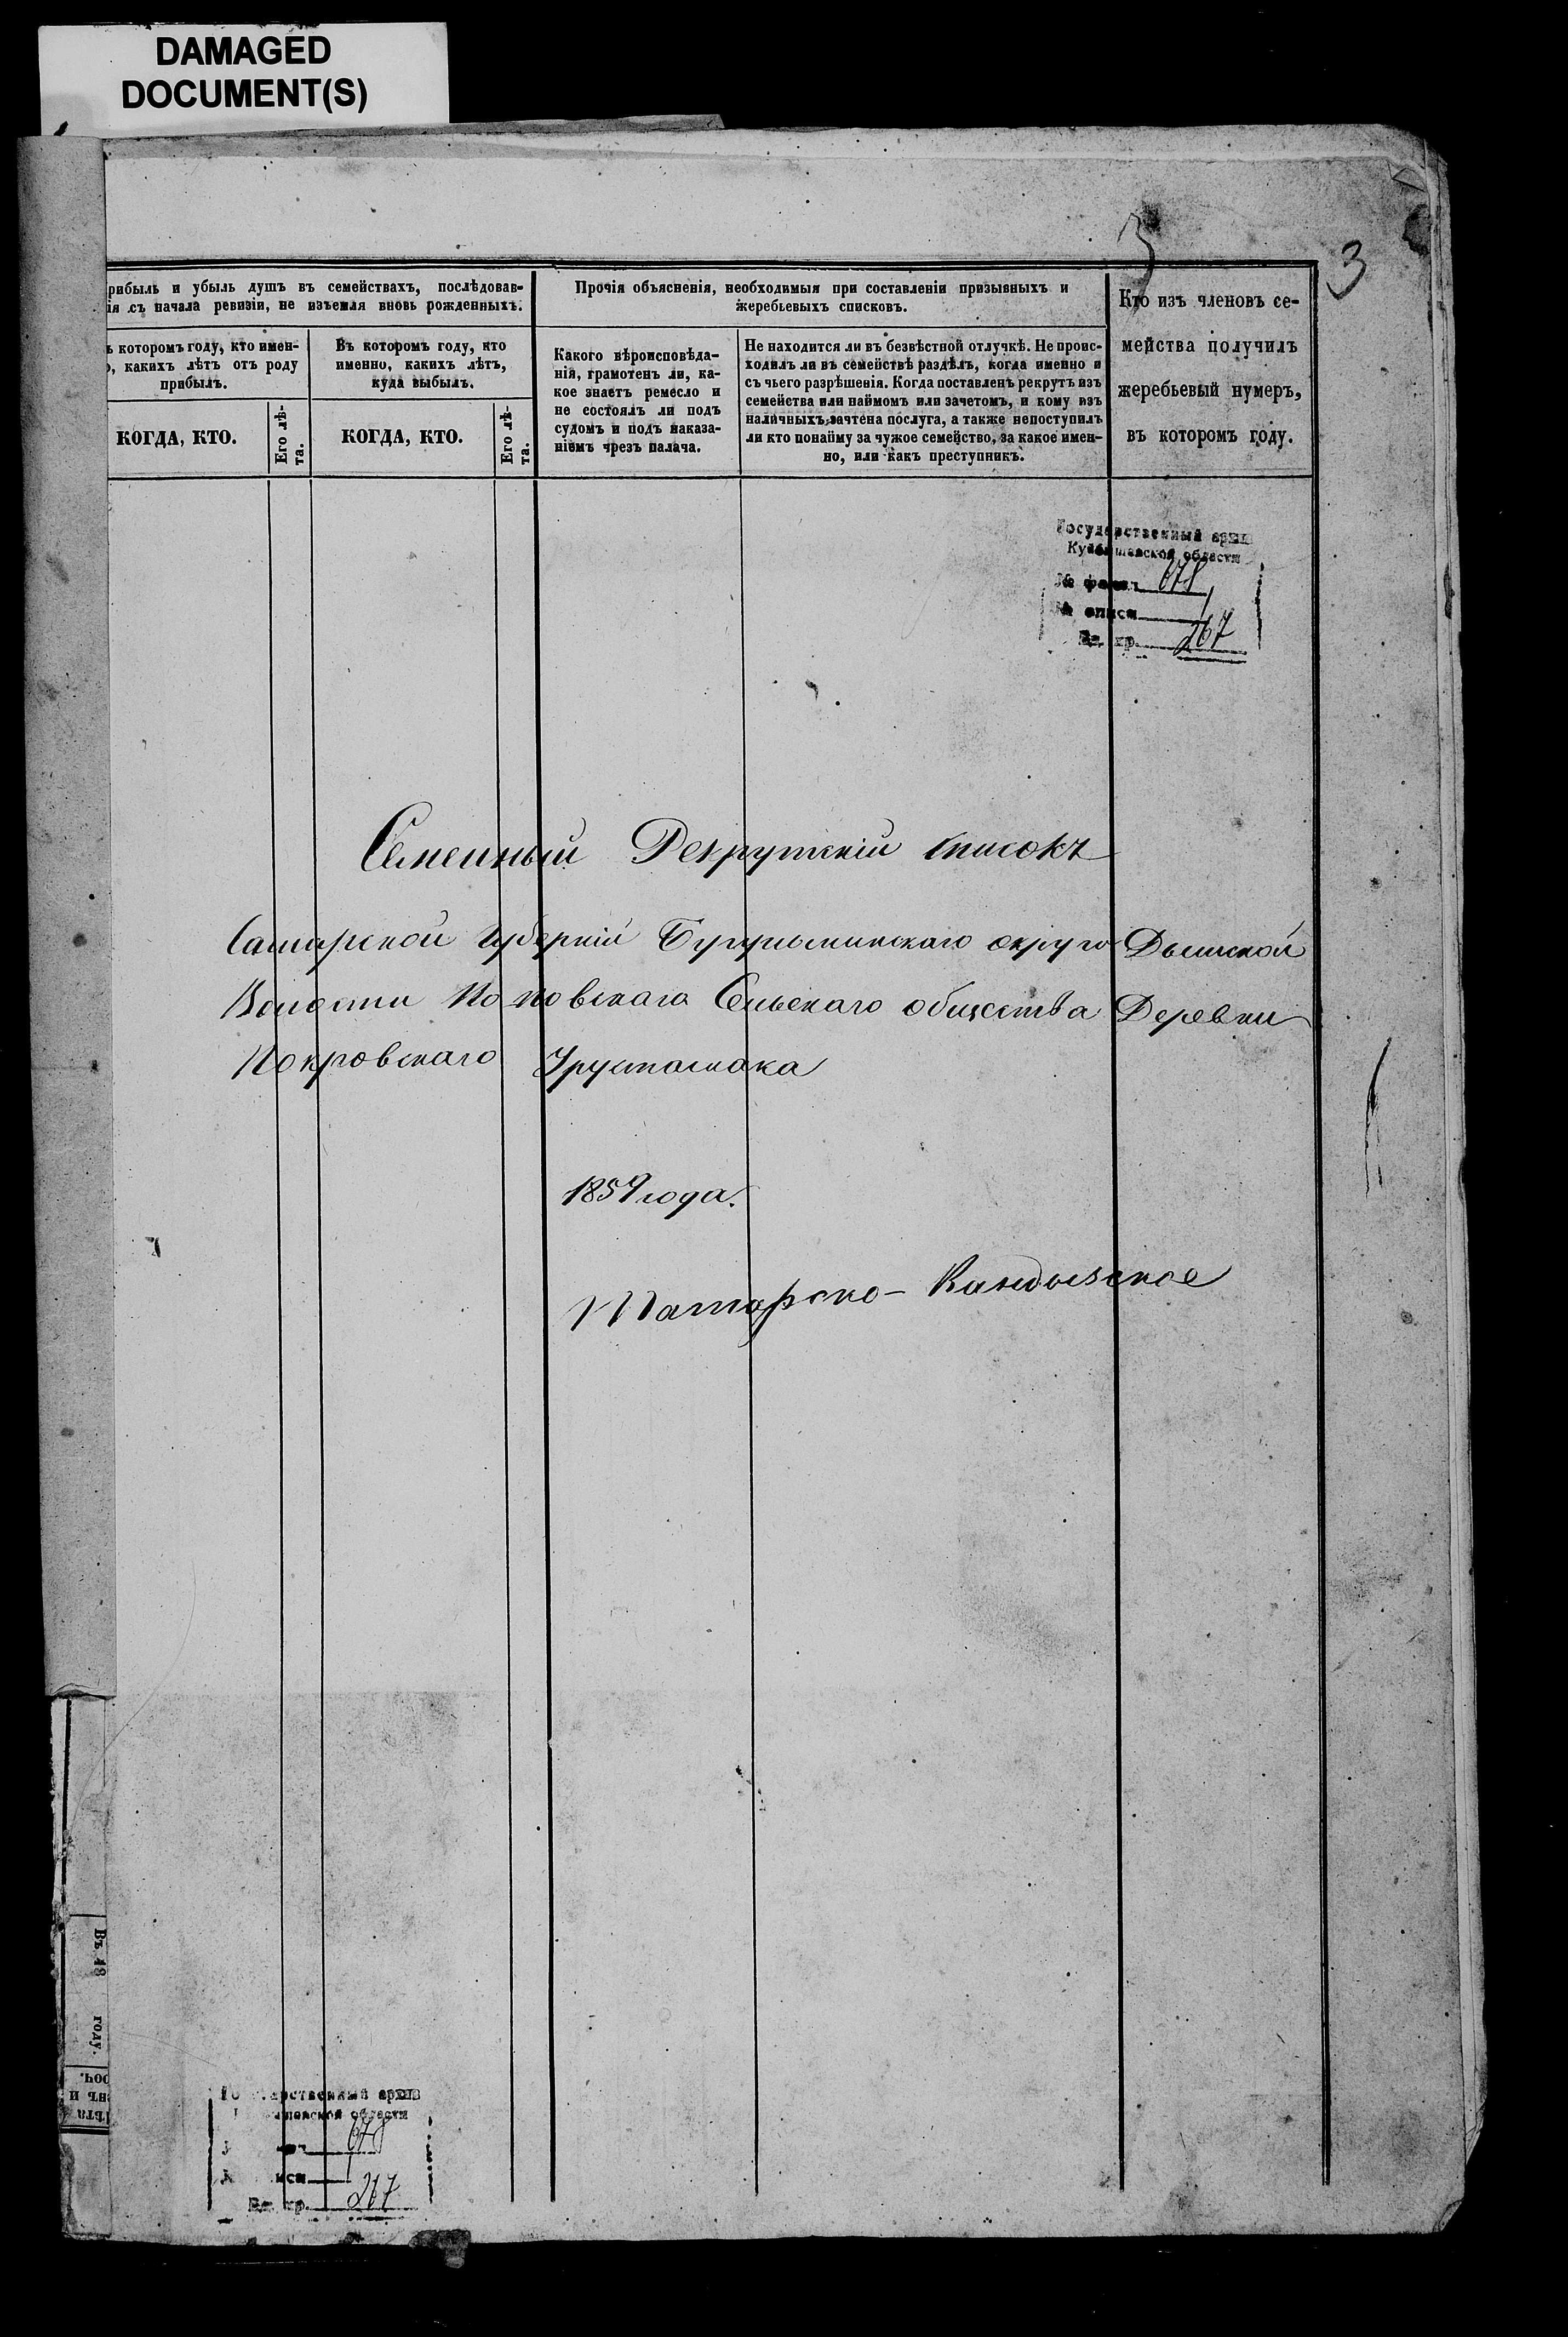 DAMAGED
DOCUMENT(S)
3
3
рибыль и убыль душъ въ семействахъ, послѣдовав-
ія съ начала ревизіи, не изъемля вновь рожденныхъ.
ъ которомъ году, кто имен-
о, какихъ лѣтъ отъ роду
прибылъ.
КОГДА, КТО.
Его лѣ-
та.
Въ которомъ году, кто
именно, какихъ лѣтъ,
куда выбылъ.
КОГДА, КТО.
Его лѣ-
та.
Прочія объясненія, необходимыя при составленіи призывныхъ и
жеребьевыхъ списковъ.
Какого вѣроисповѣда-
ній, грамотенъ ли, ка-
кое знаетъ ремесло и
не состоялъ ли подъ
судомъ и подъ наказа-
ніемъ чрезъ палача.
Не находится ли въ безвѣстной отлучкѣ. Не проис-
ходилъ ли въ семействѣ раздѣлъ, когда именно и
съ чьего разрѣшенія. Когда поставленъ рекрутъ изъ
семейства или наймомъ или зачетомъ, и кому изъ
наличныхъ зачтена послуга, а также непоступилъ
ли кто понайму за чужое семейство, за какое имен-
но, или какъ преступникъ.
Кто изъ членовъ се-
мейства получилъ
жеребьевый нумеръ,
въ которомъ году.
Государственный архив
Куйбышевской области
№ фонд 678
№ описи 1
Ед. хр. 267
Семейный Рекрутскій списокъ
Самарской губерніи Бугульминскаго округа Дымской
Волости Поповскаго Сельскаго общества Деревни
Покровскаго Урустамака
1859 года.
Татарско-Кандызское
Въ 18 году.
Государственный архив
Куйбышевской области
678
описи 1
Ед. хр. 267